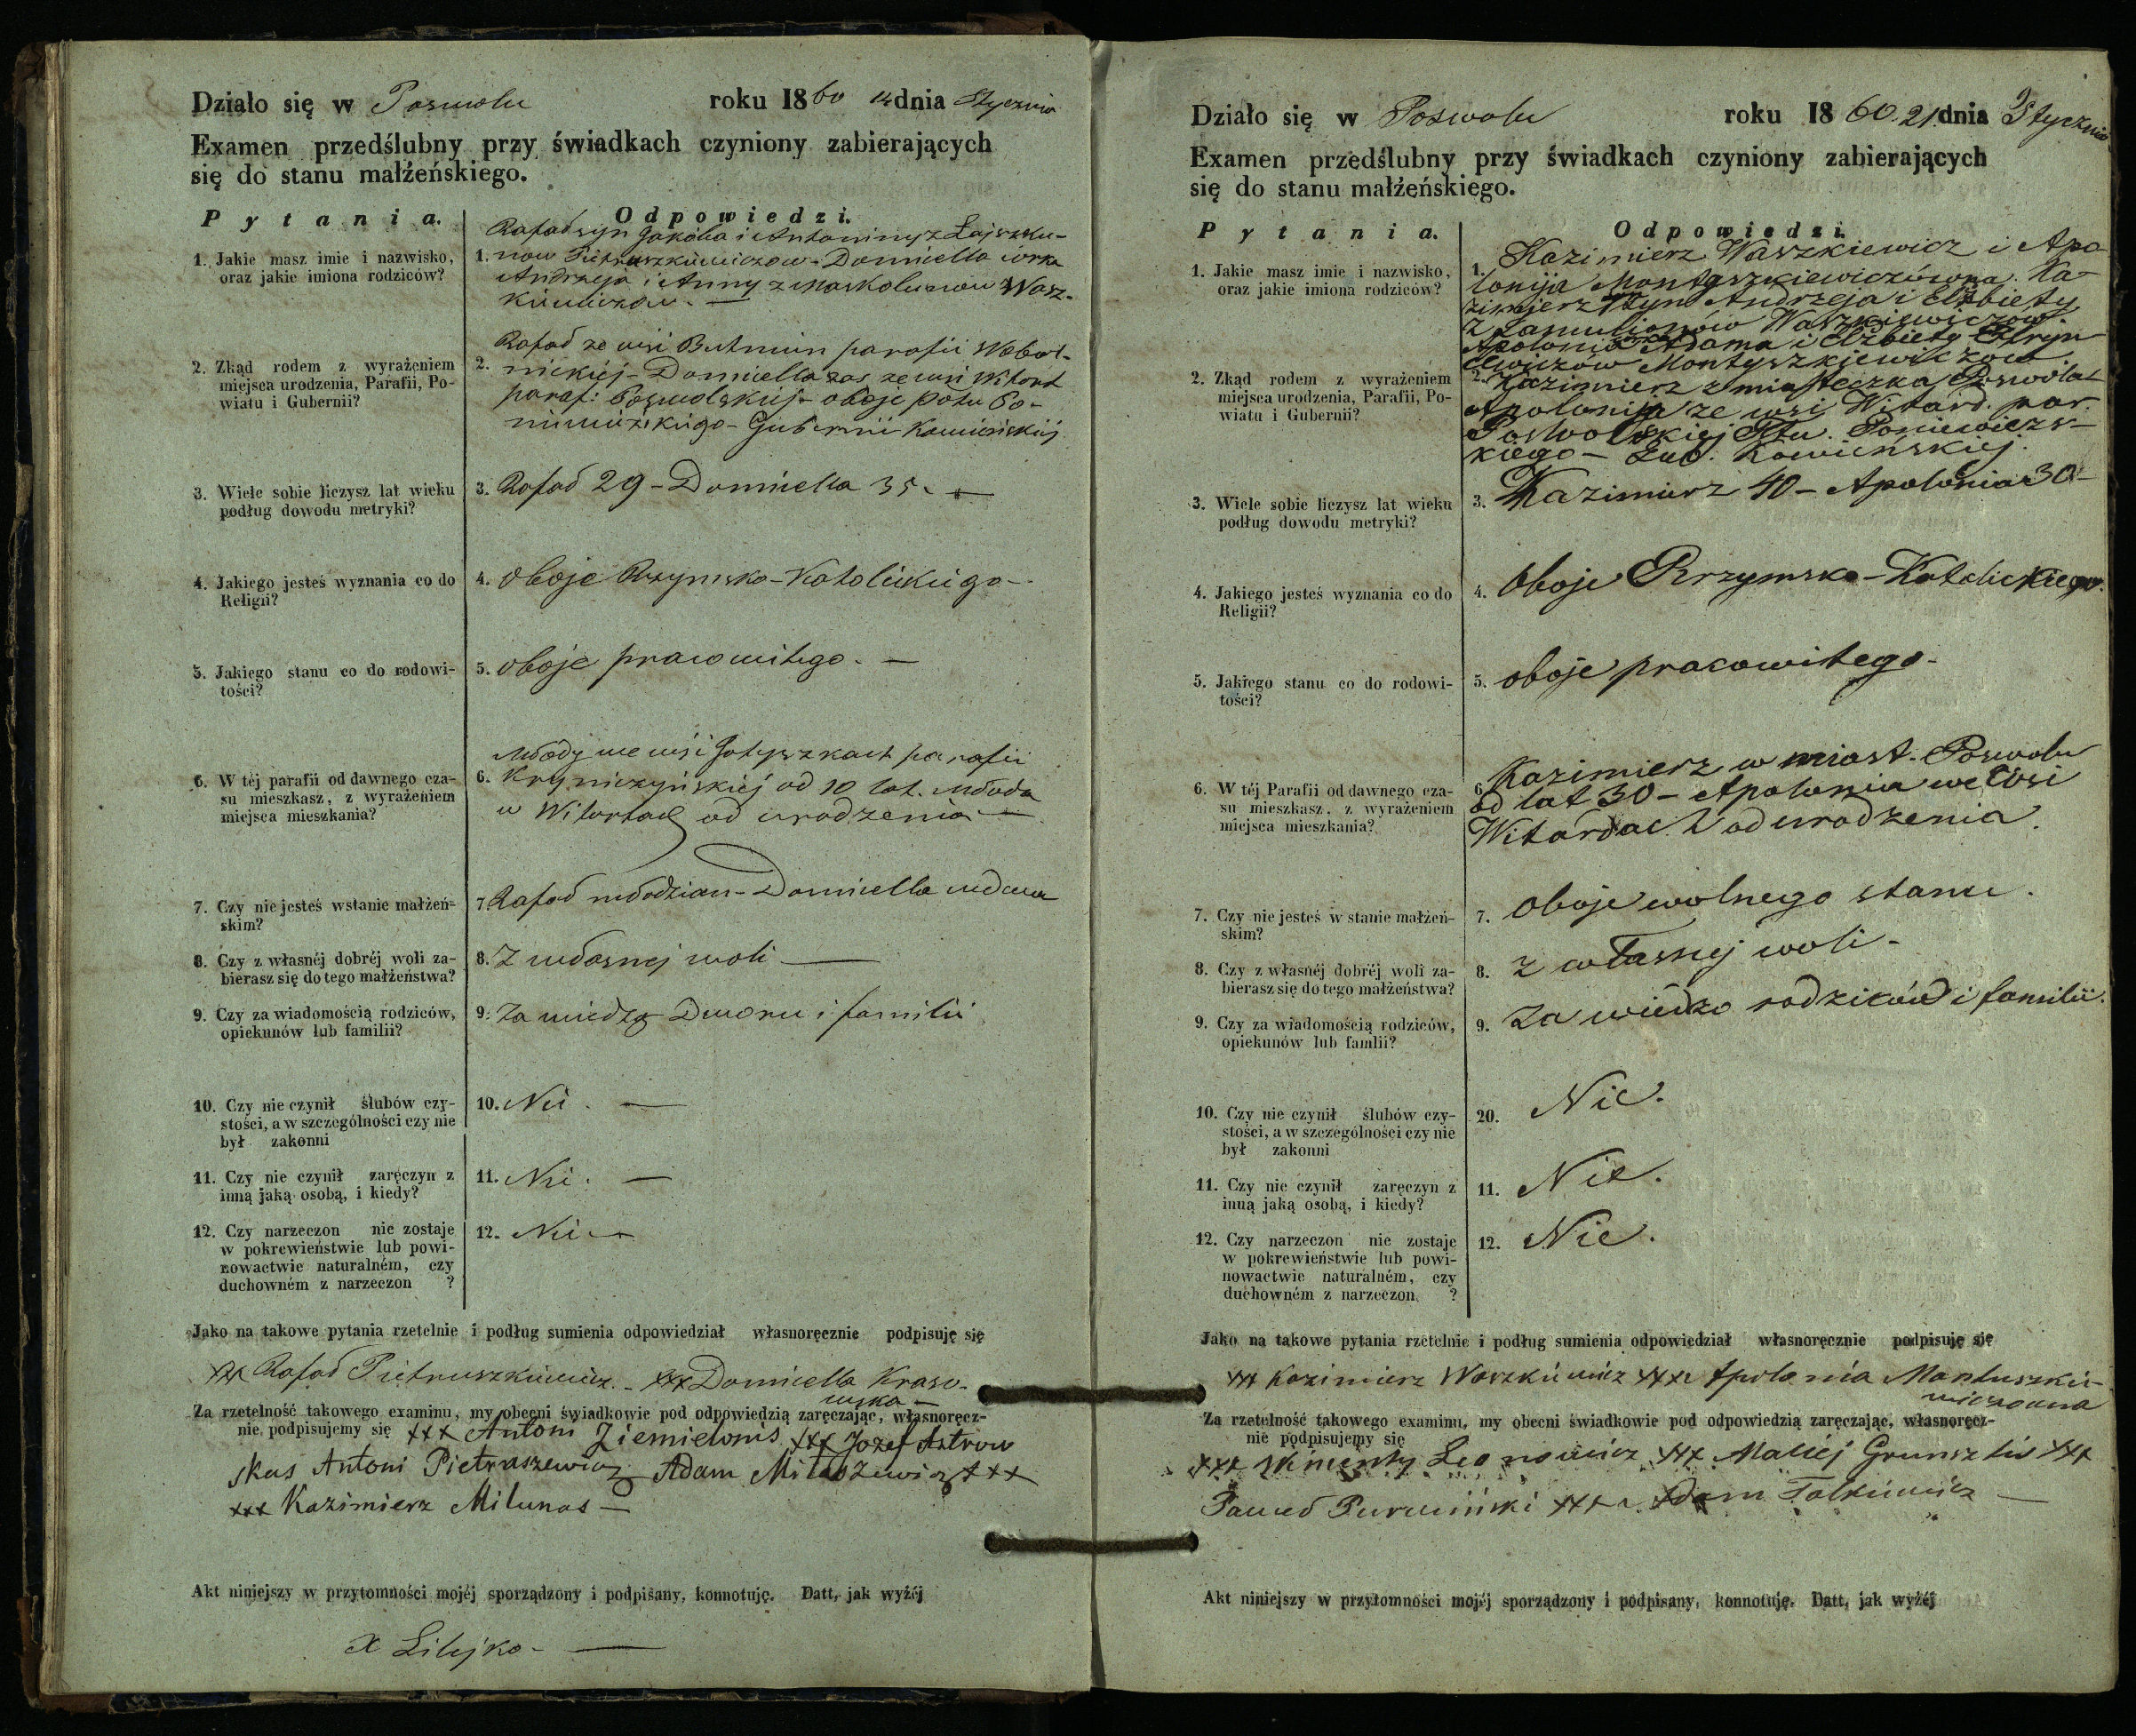 Działo się w Poswolu roku 1860 14 dnia Stycznia
Examen przedślubny przy świadkach czyniony zabierających
się do stanu małżeńskiego.
Pytania. Odpowiedzi.
1. Jakie masz imie i nazwisko,
oraz jakie imiona rodziców?
Rafał syn Jakóba i Antoniny z
1. now Pietruszkiewiczow - Domicella córka
Andrzeja i Anny z Wasz-
kiewiczow. —
2. Zkąd rodem z wyrażeniem
miejsca urodzenia, Parafii, Po-
wiatu i Gubernii?
Rafał ze wsi parafii Wobol-
2. nickiej - Domicella zas ze wsi Witort
paraf: Poswolskiej - oboje potu Po-
niewiezkiego - Gubernii Kowieńskiej
3. Wiele sobie liczysz lat wieku
podług dowodu metryki?
3. Rafał 29 - Domicella 35. —
4. Jakiego jesteś wyznania co do
Religii?
4. oboje Rzymsko-Katolickiego -
5. Jakiego stanu co do rodowi-
tości?
5. oboje pracowitego. —
6. W téj parafii od dawnego cza-
su mieszkasz, z wyrażeniem
miejsca mieszkania?
Młody we wsi parafii
6. Kryniczyńskiéj od 10 lat. Młoda
w Witortach od urodzenia —
7. Czy nie jesteś wstanie małżeń-
skim?
7. Rafał młodzian - Domicella wdowa
8. Czy z własnéj dobréj woli za-
bierasz się do tego małżeństwa?
8. Z własnej woli —
9. Czy za wiadomością rodziców,
opiekunów lub familii?
9. Za wiedzą Dworu i familii
10. Czy nie czynił ślubów czy-
stości, a w szczególności czy nie
był zakonni
10. Nie. —
11. Czy nie czynił zaręczyn z
inną jaką osobą, i kiedy?
11. Nie. —
12. Czy narzeczon nie zostaje
w pokrewieństwie lub powi-
nowactwie naturalném, czy
duchowném z narzeczon ?
12. Nie —
Jako na takowe pytania rzetelnie i podług sumienia odpowiedział własnoręcznie podpisuję się
xxx Rafał Pietruszkiewicz - xxx Domicella Kraso-
wska -
Za rzetelność takowego examinu, my obecni świadkowie pod odpowiedzią zaręczając, własnoręcz-
nie podpisujemy się xxx Antoni Ziemielonis xxx Jozef Astrow
skas Antoni Pietraszewicz Adam Milaszewicz xxx
xxx Kazimierz Milunas —
Akt niniejszy w przytomności mojéj sporządzony i podpisany, konnotuję. Datt, jak wyżéj
X Lilejko - —
Działo się w Poswolu roku 1860. 21. dnia Stycznia
Examen przedślubny przy świadkach czyniony zabierających
się do stanu małżeńskiego.
Pytania. Odpowiedzi.
1. Jakie masz imie i nazwisko,
oraz jakie imiona rodziców?
1. Kazimierz Waszkiewicz i Apo-
lonija Montyszkiewiczówna. Ka-
zimierz syn Andrzeja i Elżbiety
z Waszkiewiczow
Apolonia córka Adama i Elżbiety
Montyszkiewiczow.
2. Zkąd rodem z wyrażeniem
miejsca urodzenia, Parafii, Po-
wiatu i Gubernii?
2. Kazimierz z miasteczka Poswola -
Apolonija ze wsi Witard. par.
Poswolskiej Ptu. Poniewiezs-
kiego - Gub. Kowieńskiej.
3. Wiele sobie liczysz lat wieku
podług dowodu metryki?
3. Kazimierz 40 - Apolonia 30 -
4. Jakiego jesteś wyznania co do
Religii?
4. Oboje Rzymsko-Katolickiego.
5. Jakiego stanu co do rodowi-
tości?
5. oboje pracowitego -
6. W téj Parafii od dawnego cza-
su mieszkasz, z wyrażeniem
miejsca mieszkania?
6. Kazimierz w miast. Poswolu
od lat 30 - Apolonia we wsi
Witardach od urodzenia.
7. Czy nie jesteś w stanie małżeń-
skim?
7. Oboje wolnego stanu.
8. Czy z własnéj dobréj woli za-
bierasz się do tego małżeństwa?
8. z własnej woli -
9. Czy za wiadomością rodziców,
opiekunów lub famlii?
9. Za wiedzo rodziców i familii.
10. Czy nie czynił ślubów czy-
stości, a w szczególności czy nie
był zakonni
20. Nie.
11. Czy nie czynił zaręczyn z
inną jaką osobą, i kiedy?
11. Nie.
12. Czy narzeczon nie zostaje
w pokrewieństwie lub powi-
nowactwie naturalném, czy
duchowném z narzeczon ?
12. Nie.
Jako na takowe pytania rzetelnie i podług sumienia odpowiedział własnoręcznie podpisuję się
xxx Kazimierz Waszkiewicz xxx Apolonia Mantuszkie-
wiczowna
Za rzetelność takowego examinu, my obecni świadkowie pod odpowiedzią zaręczając, własnoręcz-
nie podpisujemy się
xxx Leonowicz xxx Maciej xxx
Paweł Purwiński xxx Adam Falkiewicz —
Akt niniejszy w przytomności mojéj sporządzony i podpisany, konnotuję. Datt, jak wyżéj